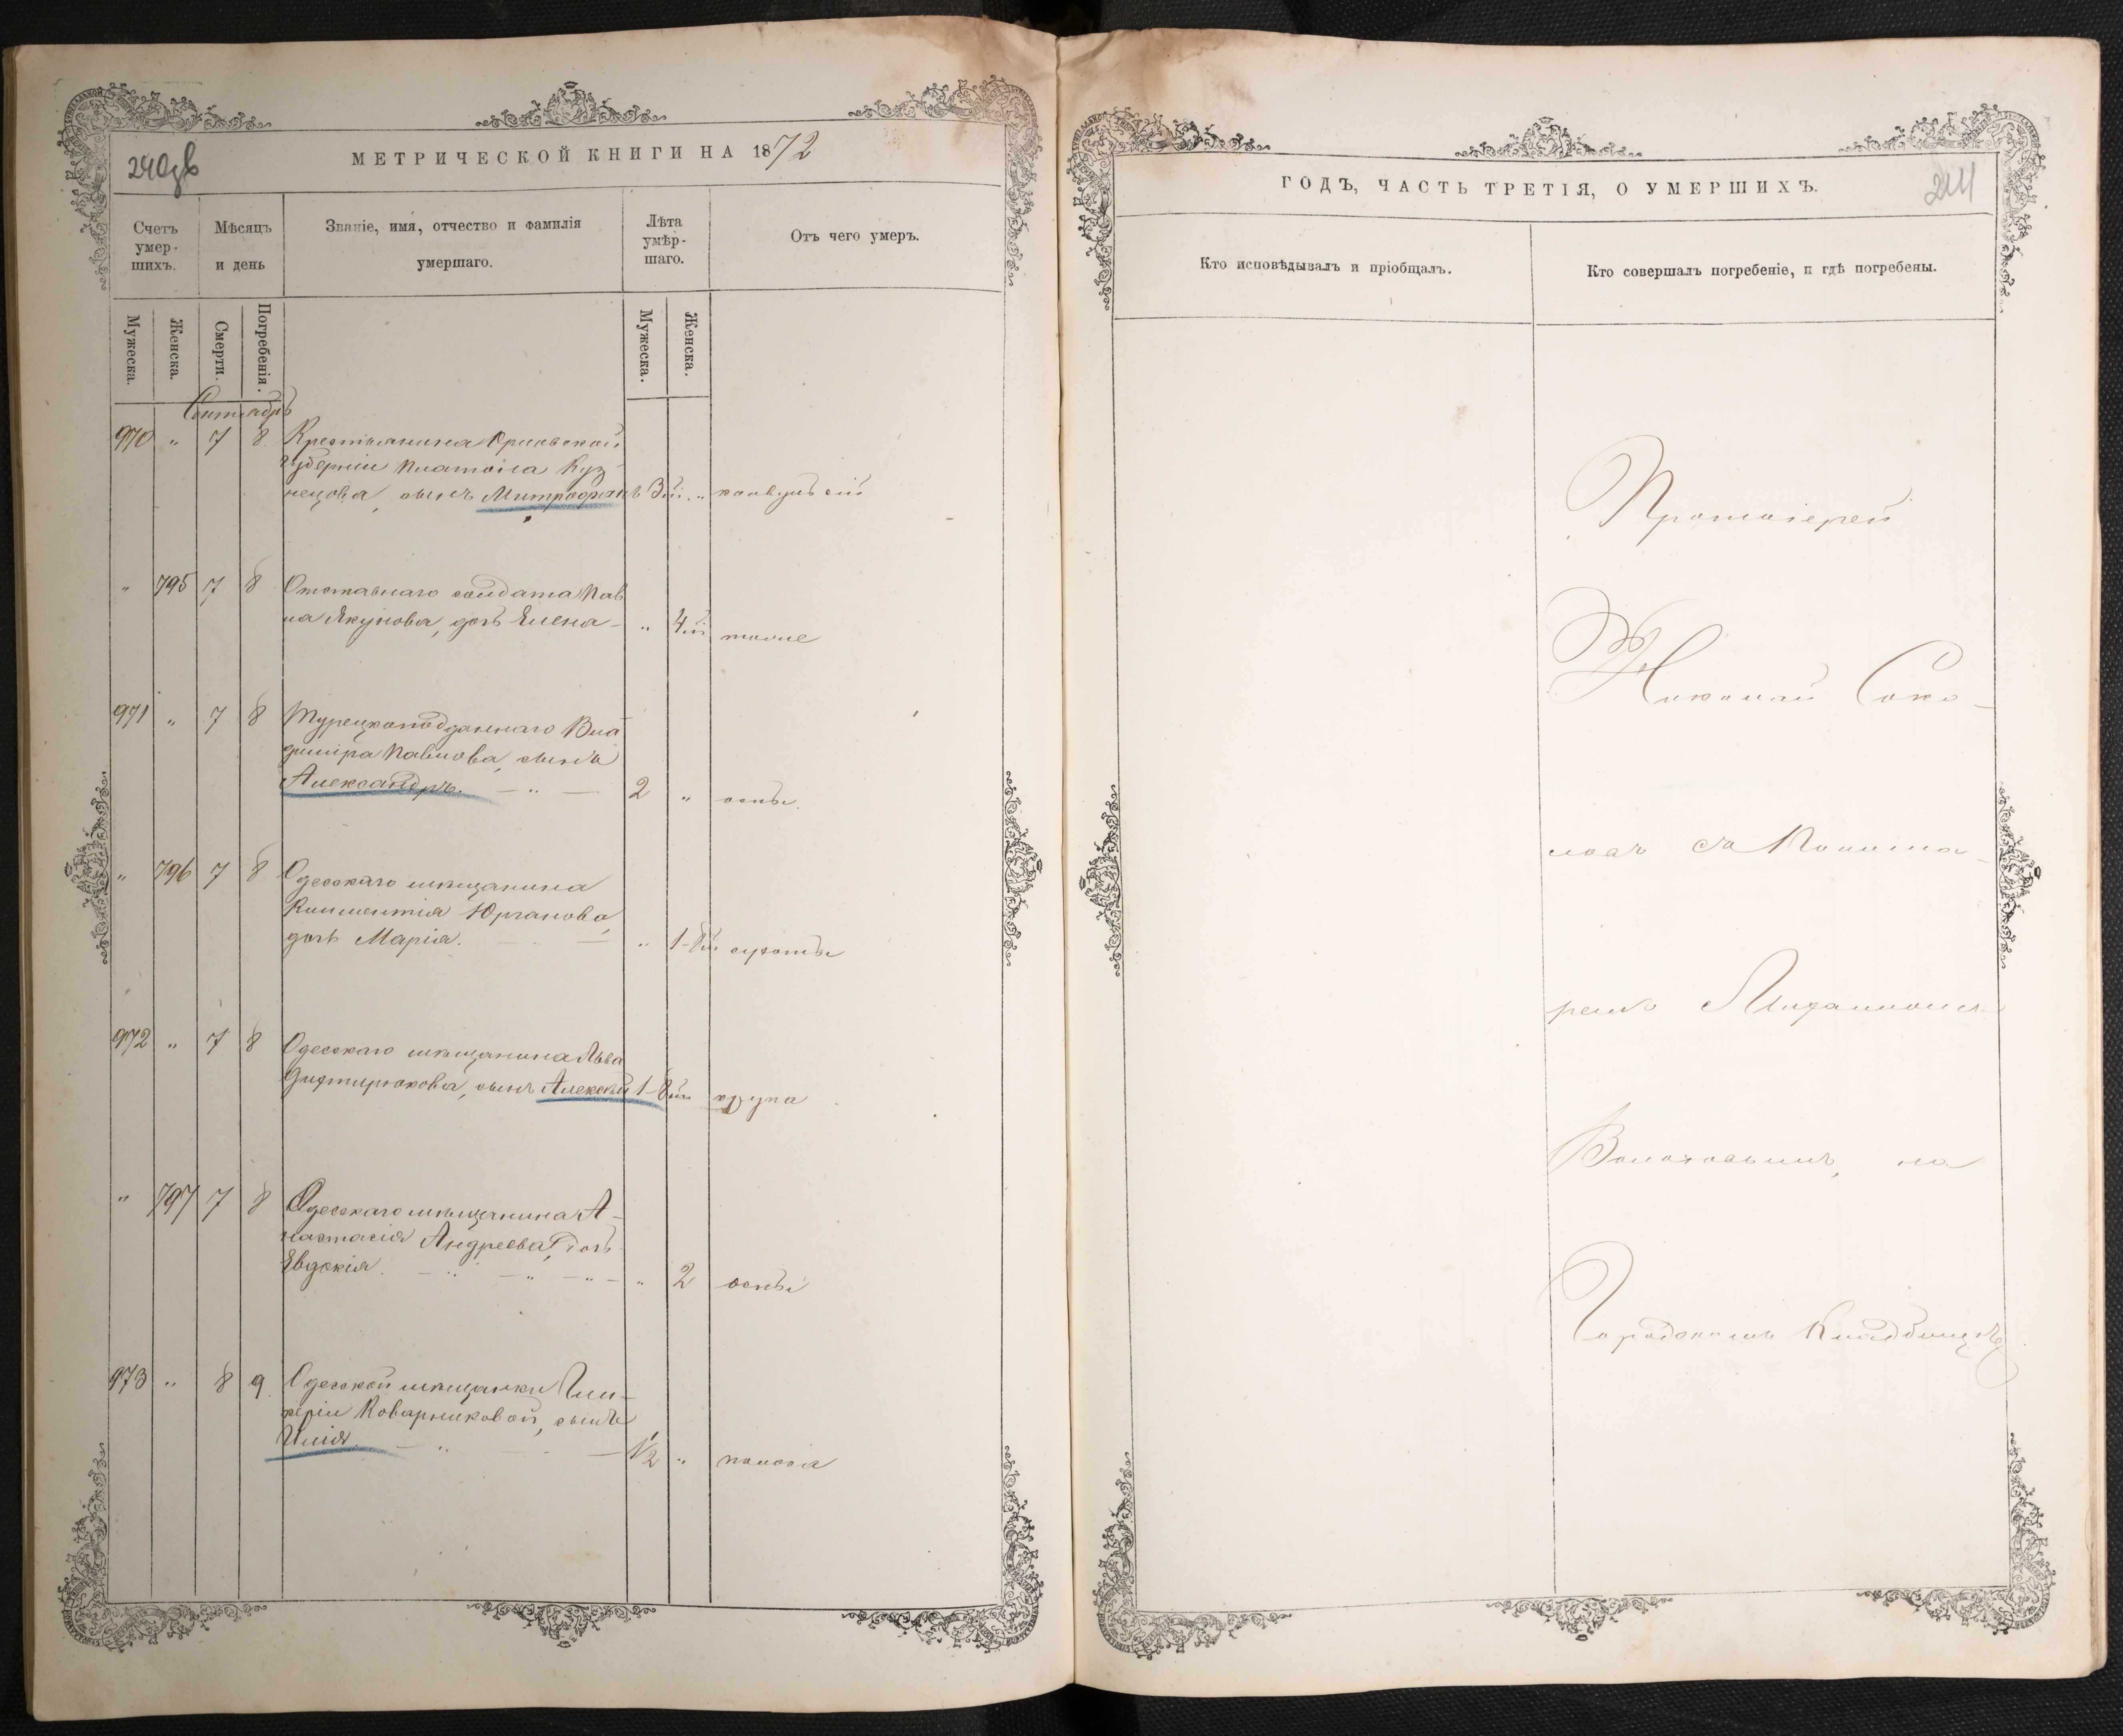 240об
МЕТРИЧЕСКОЙ КНИГИ НА 1872
Счетъ умер-шихъ.
Мѣсяцъ и день
Званіе, имя, отчество и фамилія умершаго.
Лѣта умѣр-шаго.
Отъ чего умеръ.
Мужеска.
Женска.
Смерти.
Погребенія.
Мужеска.
Женска.
Сентябрь
970 " 7 8 Крестьянина Орловской
губерніи Платона Куз-
нецова, сынъ Митрофанъ 3 "
" 795 7 8 Отставнаго солдата Пав
ла Якунова, дочь Елена - " 4 тоже
971 " 7 8 Турецкоподданнаго Вла
диміра Павлова, сынъ
Александръ. 2 " оспы.
" 796 7 8 Одесскаго мѣщанина
Климентія Юрганова,
дочь Марія. " 1 сухоты
972 " 7 8 Одесскаго мѣщанина Льва
сынъ Алексѣй 1 крупа
" 797 7 8 Одесскаго мѣщанина А-
настасія Андреева, дочь
Евдокія. " 2 оспы
973 " 8 9 Одесской мѣщанки Гли-
керіи Коварниковой, сынъ
Илія. 1/2 " поноса
ГОДЪ, ЧАСТЬ ТРЕТІЯ, О УМЕРШИХЪ.
241
Кто исповѣдывалъ и пріобщалъ.
Кто совершалъ погребеніе, и гдѣ погребены.
Протоіерей
Николай Соко-
ловъ съ Понома-
ремъ
на
Городскомъ Кладбищѣ